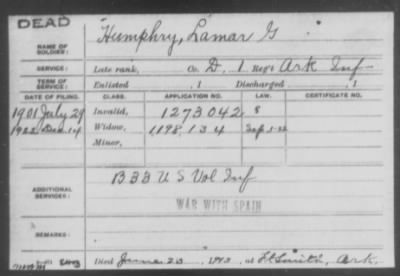 DEAD
NAME OF SOLDIER: Humphry, Lamar G
SERVICE: Late rank, Co. D, 1 Reg't Ark Inf
TERM OF SERVICE: Enlisted , 1 Discharged , 1
DATE OF FILING. CLASS. APPLICATION NO. LAW. CERTIFICATE NO.
1901 July 29 Invalid, 1273042
1922 Dec. 14 Widow, 1198,134
Minor,
ADDITIONAL SERVICES: B 33 U S Vol Inf
WAR WITH SPAIN
REMARKS:
Died June at Ft Smith, Ark.